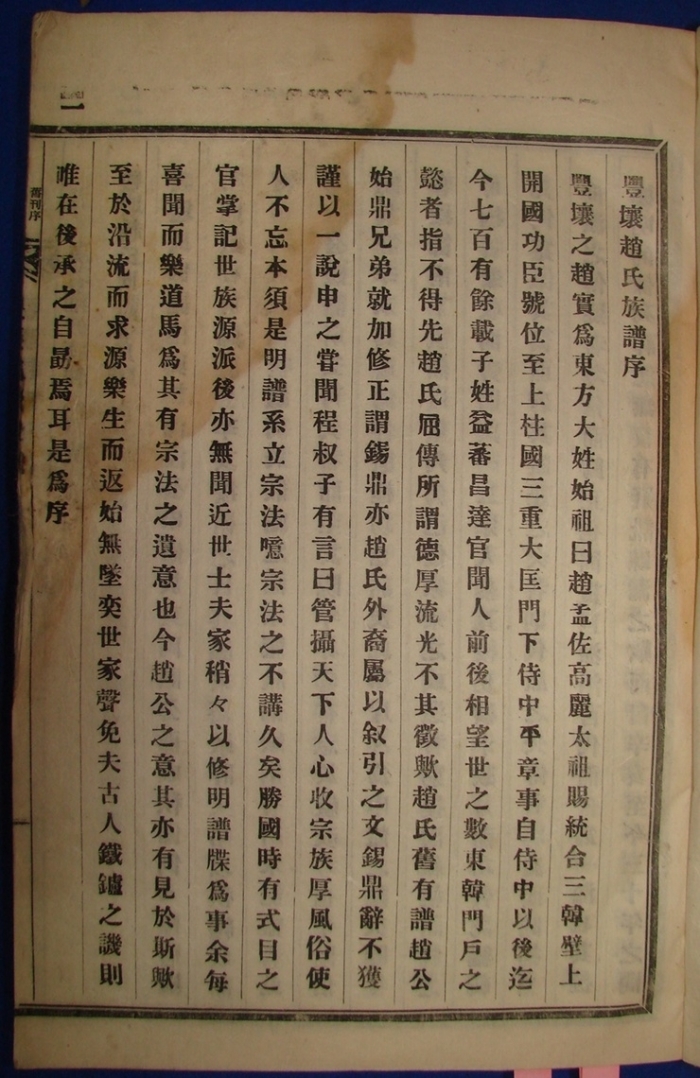 豐壤趙氏族譜序
豐壤之趙實爲東方大姓始祖曰趙孟佐高麗太祖賜統合三韓壁上
開國功臣號位至上柱國三重大匡門下侍中平章事自侍中以後迄
今七百有餘載子姓益蕃昌達官聞人前後相望世之數東韓門戶之
懿者指不得先趙氏屈傳所謂德厚流光不其徵歟趙氏舊有譜趙公
始鼎兄弟就加修正謂錫鼎亦趙氏外裔屬以叙引之文錫鼎辭不獲
謹以一說申之甞聞程叔子有言曰管攝天下人心收宗族厚風俗使
人不忘本須是明譜系立宗法噫宗法之不講久矣勝國時有式目之
官掌記世族源派後亦無聞近世士夫家稍々以修明譜牒爲事余每
喜聞而樂道焉爲其有宗法之遺意也今趙公之意其亦有見於斯歟
至於沿流而求源樂生而返始無墜奕世家聲免夫古人鐵鑪之譏則
唯在後承之自勗焉耳是爲序
舊刊序
一